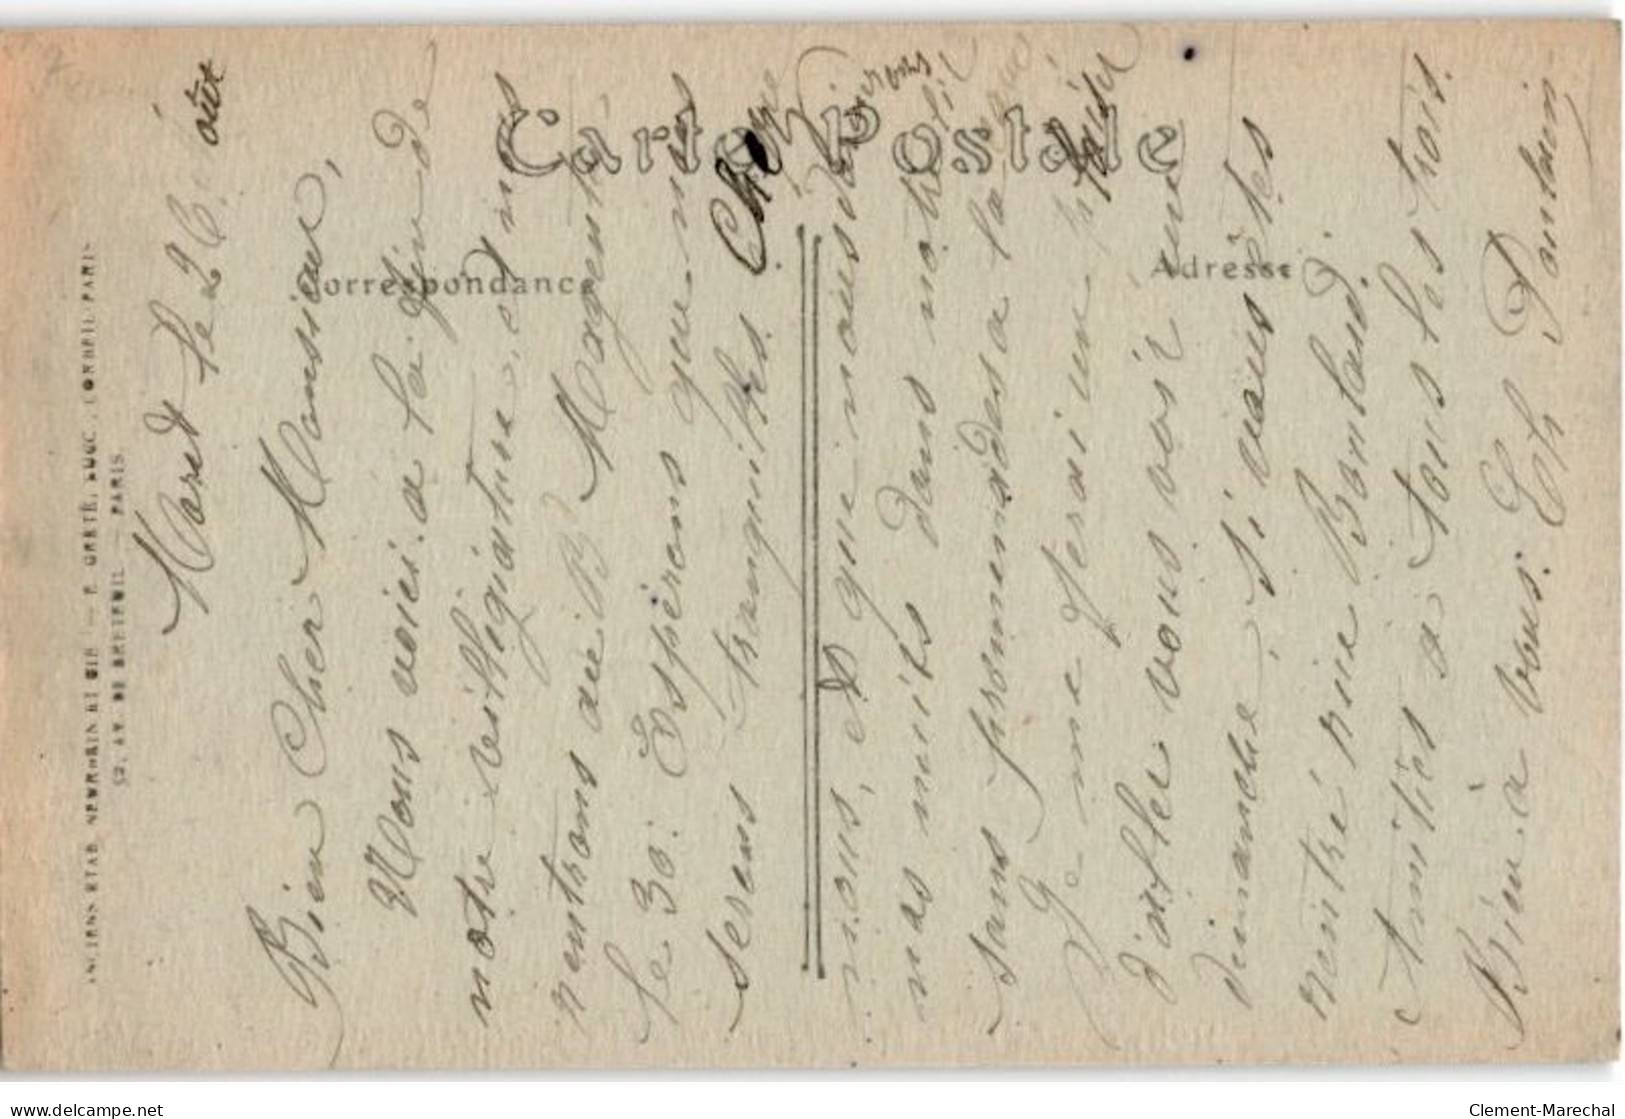 Carte Postale
Correspondance
Adresse
ANCIENS ETAB. NEURDEIN ET CIE — F. CRÉTÉ, SUCC., CORBEIL-PARIS
52, AV. DE BRETEUIL — PARIS
Mardi le 26 août
Bien Cher Monsieur,
Nous voici à la fin de
notre villégiature, et nous
rentrons au Bd Magenta
le 30. Espérons que nous
serons tranquilles chez
nous, et que nous dormirons
nos nuits dans notre lit
sans promenades à la
Je me ferai un plaisir
d'aller vous voir un
dimanche si vous êtes
rentré rue Bontaud.
Amitiés à tous les trois.
Bien à vous. Eth Pontain
www.delcampe.net
Clement-Marechal